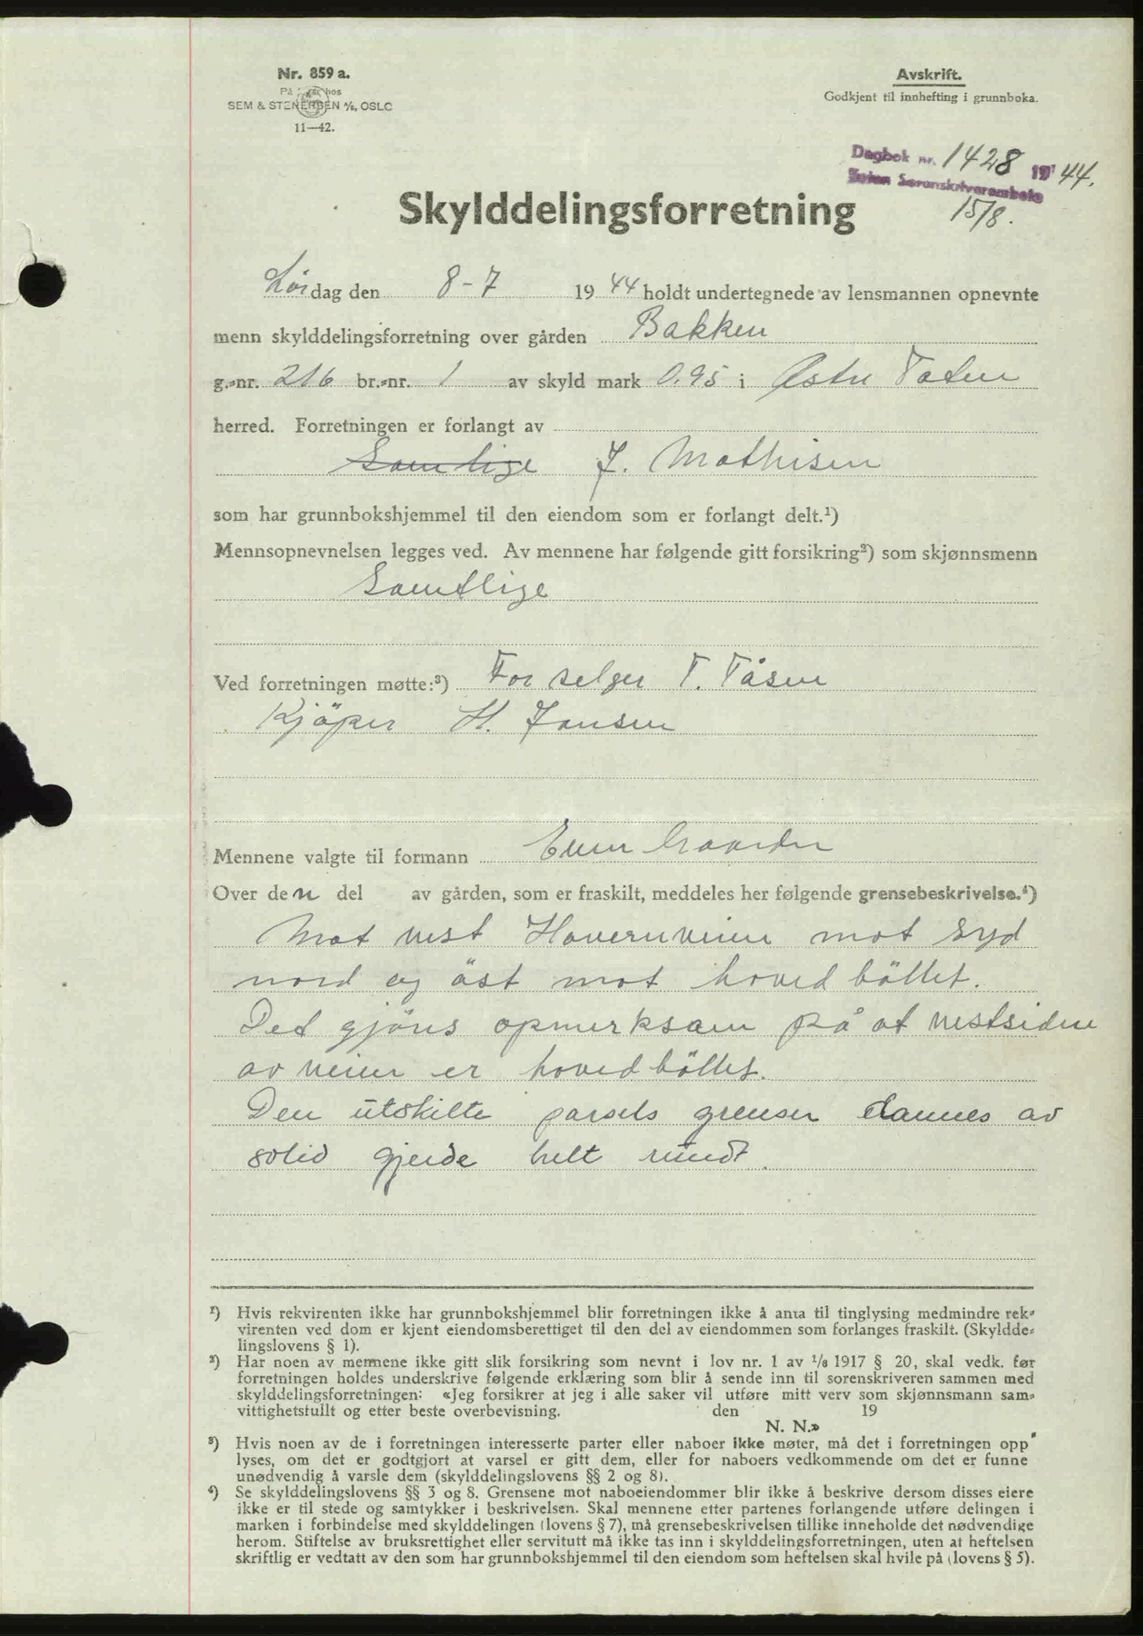 Nr. 859 a.
På lager hos
SEM & STENERSEN A/S, OSLO
11—42.
Avskrift.
Godkjent til innhefting i grunnboka.
Dagbok nr. 1428 19 44.
Toten Sorenskriverembete
15/8.
Skylddelingsforretning
Lördag den 8-7 19 44 holdt undertegnede av lensmannen opnevnte
menn skylddelingsforretning over gården Bakken
g.-nr. 216 br.-nr. 1 av skyld mark 0.95 i Østre Toten
herred. Forretningen er forlangt av
Samtlige J. Mathisen
som har grunnbokshjemmel til den eiendom som er forlangt delt.¹)
Mennsopnevnelsen legges ved. Av mennene har følgende gitt forsikring²) som skjønnsmenn
Samtlige
Ved forretningen møtte:³) For selger T. Tåsen
Kjöper H. Jansen
Mennene valgte til formann Even Gaarder
Over den del av gården, som er fraskilt, meddeles her følgende grensebeskrivelse.⁴)
Mot vest Havernveien mot syd
nord og öst mot hovedböllet.
Det gjöres opmerksam på at vestsiden
av veien er hovedböllet.
Den utskilte parsels grenser dannes av
solid gjerde helt rundt.
¹) Hvis rekvirenten ikke har grunnbokshjemmel blir forretningen ikke å anta til tinglysing medmindre rek-
virenten ved dom er kjent eiendomsberettiget til den del av eiendommen som forlanges fraskilt. (Skyldde-
lingslovens § 1).
²) Har noen av mennene ikke gitt slik forsikring som nevnt i lov nr. 1 av 1/6 1917 § 20, skal vedk. før
forretningen holdes underskrive følgende erklæring som blir å sende inn til sorenskriveren sammen med
skylddelingsforretningen: «Jeg forsikrer at jeg i alle saker vil utføre mitt verv som skjønnsmann sam-
vittighetsfullt og etter beste overbevisning. den 19
N. N.»
³) Hvis noen av de i forretningen interesserte parter eller naboer ikke møter, må det i forretningen opp-
lyses, om det er godtgjort at varsel er gitt dem, eller for naboers vedkommende om det er funne
unødvendig å varsle dem (skylddelingslovens §§ 2 og 8).
⁴) Se skylddelingslovens §§ 3 og 8. Grensene mot naboeiendommer blir ikke å beskrive dersom disses eiere
ikke er til stede og samtykker i beskrivelsen. Skal mennene etter partenes forlangende utføre delingen i
marken i forbindelse med skylddelingen (lovens § 7), må grensebeskrivelsen tillike inneholde det nødvendige
herom. Stiftelse av bruksrettighet eller servitutt må ikke tas inn i skylddelingsforretningen, uten at heftelsen
skriftlig er vedtatt av den som har grunnbokshjemmel til den eiendom som heftelsen skal hvile på (lovens § 5).